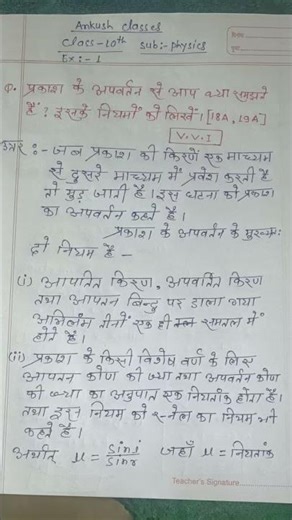 Ankush classes
Class-10th sub:- physics
Ex:- 1
Date
Page
Q. प्रकाश के अपवर्तन से आप क्या समझते
हैं? इसके नियमों को लिखें। [18A, 19A]
V.V.I
उत्तर :- जब प्रकाश की किरणें एक माध्यम
से दुसरे माध्यम में प्रवेश करती है
तो मुड़ जाती है। इस घटना को प्रकाश
का अपवर्तन कहते हैं।
प्रकाश के अपवर्तन के मुख्यतः
दो नियम है -
(i) आपतित किरण, अपवर्तित किरण
तथा आपतन बिन्दु पर डाला गया
अभिलंब तीनों एक ही समतल में
होते हैं।
(ii) प्रकाश के किसी विशेष वर्ण के लिए
आपतन कोण की ज्या तथा अपवर्तन कोण
की ज्या का अनुपात एक नियतांक होता है।
तथा इस नियम को स्नेल का नियम भी
कहते हैं।
अर्थात् μ = sini/sinr जहाँ μ = नियतांक
Teacher's Signature